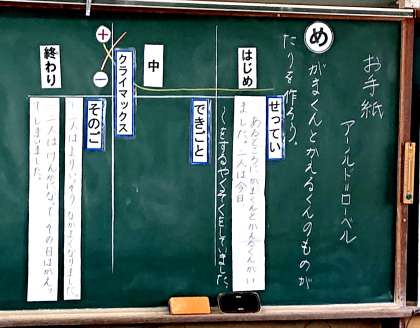 お手紙
アールド=ローベル
め
がまくんとかえるくんのものが
たりを作ろう。
はじめ
せってい
あるところに、がまくんとかえるくんがい
ました。二人は今日、
〜をするやくそくをしていました。
中
できごと
クライマックス
+
−
終わり
そのご
二人はよりいっそうなかよくなりました。
二人はけんかになって、その日はかえっ
てしまいました。